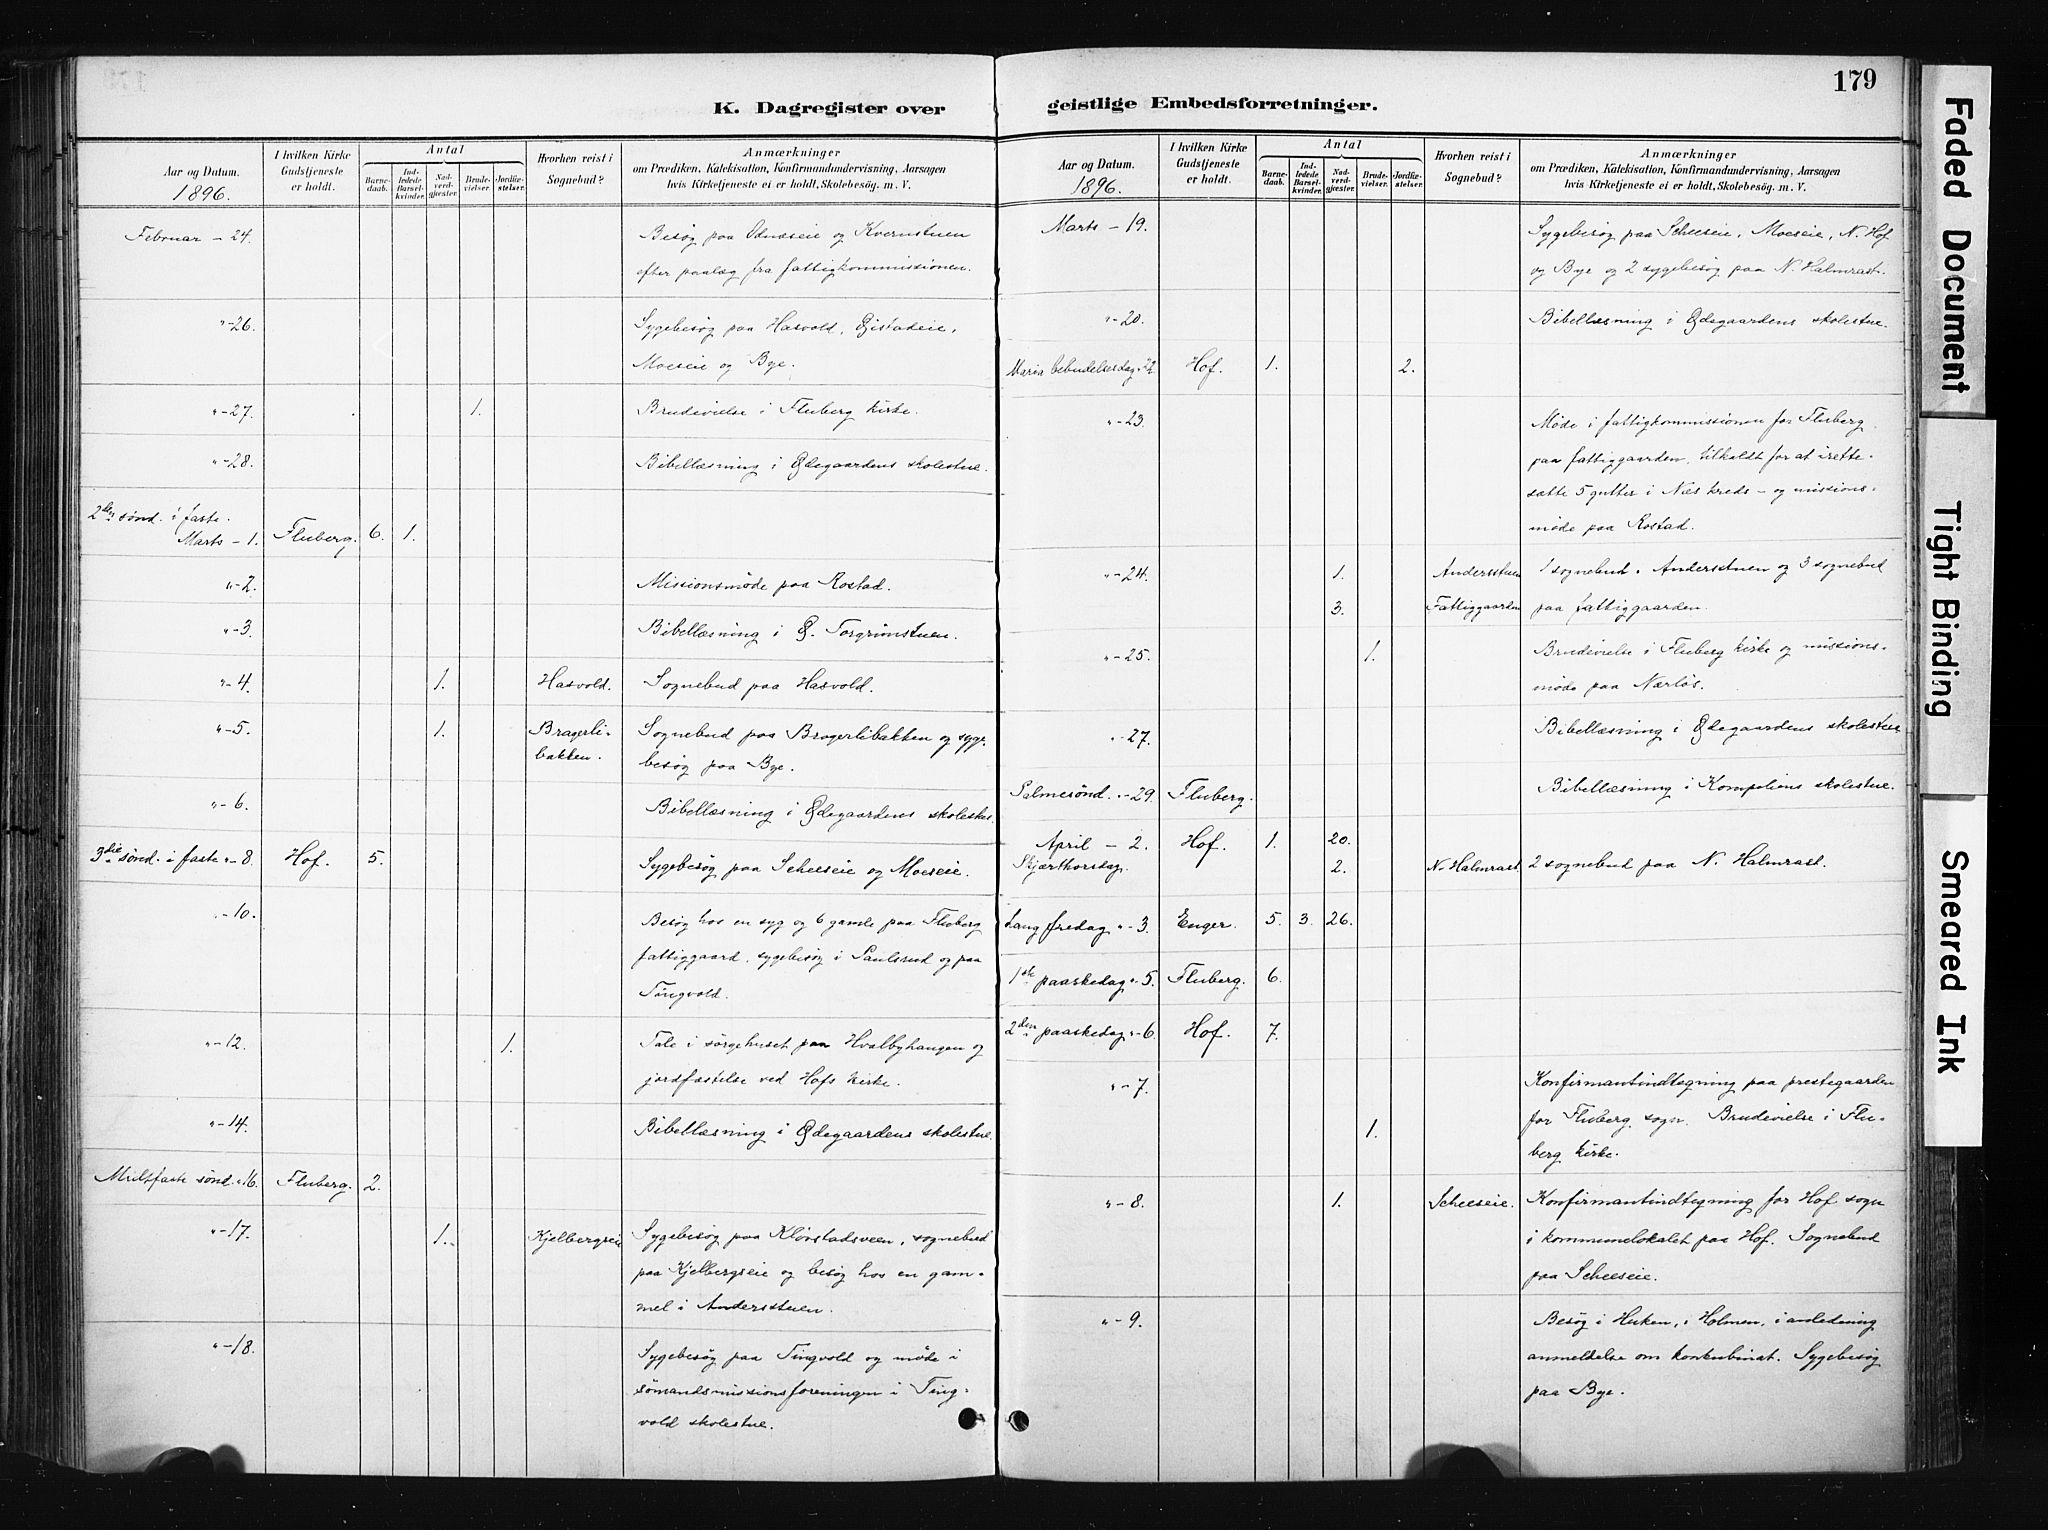 K. Dagregister over
Aar og Datum.
1896.
I hvilken Kirke Gudstjeneste er holdt.
Antal
Barnedaab.
Indledede Barselkvinder.
Nadverdgjester.
Brudevielser.
Jordfæstelser.
Hvorhen reist i Sognebud?
Anmærkninger
om Prædiken, Katekisation, Konfirmandundervisning, Aarsagen
hvis Kirketjeneste ei er holdt, Skolebesøg. m. V.
Februar – 24. Besøg paa Odnæseie og Kvernstuen
efter paalæg fra fattigkommissionen.
" – 26. Sygebesøg paa Hasvold, Gjistadeie,
Moeseie og Bye.
" – 27. 1. Brudevielse i Fluberg kirke.
" – 28. Bibellæsning i Ødegaardens skolestue.
2den sønd. i faste.
Marts – 1. Fluberg. 6. 1.
" – 2. Missionsmøde paa Rostad.
" – 3. Bibellæsning i Ø. Torgrimstuen.
" – 4. 1. Hasvold. Sognebud paa Hasvold.
" – 5. 1. Bragerli- Sognebud paa Bragerlibakken og syge-
bakken. besøg paa Bye.
" – 6. Bibellæsning i Ødegaardens skolestue.
3die sønd. i faste " – 8. Hof. 5. Sygebesøg paa Scheeseie og Moeseie.
" – 10. Besøg hos en syg og 6 gamle paa Fluberg
fattiggaard, sygebesøg i Paulsrud og paa
Tingvold.
" – 12. 1. Tale i sørgehuset paa Hvalbyhaugen og
jordfæstelse ved Hofs kirke.
" – 14. Bibellæsning i Ødegaardens skolestue.
Midtfaste sønd. " 16. Fluberg. 2.
" – 17. 1. Kjelbergseie Sygebesøg paa Klørstadsveen, sognebud
paa Kjelbergseie og besøg hos en gam-
mel i Andersstuen.
" – 18. Sygebesøg paa Tingvold og møde i
sømandsmissionsforeningen i Ting-
vold skolestue.
179
geistlige Embedsforretninger.
Aar og Datum.
1896.
I hvilken Kirke Gudstjeneste er holdt.
Antal
Barnedaab.
Indledede Barselkvinder.
Nadverdgjester.
Brudevielser.
Jordfæstelser.
Hvorhen reist i Sognebud?
Anmærkninger
om Prædiken, Katekisation, Konfirmandundervisning, Aarsagen
hvis Kirketjeneste ei er holdt, Skolebesøg. m. V.
Marts – 19. Sygebesøg paa Scheeseie, Moeseie, N. Hof
og Bye og 2 sygebesøg paa N. Halmrast.
" – 20. Bibellæsning i Ødegaardens skolestue.
Maria bebudelsesdag " 22. Hof. 1. 2.
" – 23. Møde i fattigkommissionen for Fluberg
paa fattiggaarden, tilkaldt for at irette-
sætte 5 gutter i Næs kreds – og missions-
møde paa Rostad.
" – 24. 1. Andersstuen 1 sognebud i Andersstuen og 3 sognebud
3. Fattiggaarden paa fattiggaarden.
" – 25. 1. Brudevielse i Fluberg kirke og missions-
møde paa Nærløs.
" – 27. Bibellæsning i Ødegaardens skolestue.
Palmesønd. " – 29. Fluberg. Bibellæsning i Kompeliens skolestue.
April – 2. Hof. 1. 20.
Skjærthorsdag. 2. N. Halmrast. 2 sognebud paa N. Halmrast.
Langfredag " – 3. Enger. 5. 3. 26.
1ste paaskedag " 5. Fluberg. 6.
2den paaskedag " – 6. Hof. 7.
" – 7. Konfirmantindtegning paa prestegaarden
for Fluberg sogn. Brudevielse i Flu-
1. berg kirke.
" – 8. 1. Scheeseie. Konfirmantindtegning for Hof sogn
i kommunelokalet paa Hof. Sognebud
paa Scheeseie.
" – 9. Besøg i Huken, i Holmen, i anledning
anmeldelse om konkubinat. Sygebesøg
paa Bye.
Faded Document
Tight Binding
Smeared Ink